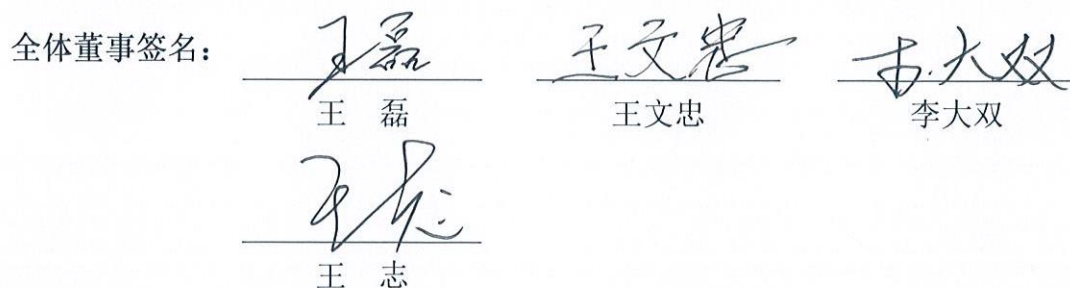 全体董事签名: 王磊 王文忠 李大双
王 磊 王文忠 李大双
王志
王 志